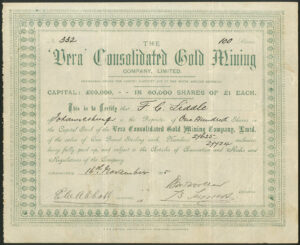 No. 332 100 Shares
THE
"Vera" Consolidated Gold Mining
COMPANY, LIMITED.
CAPITAL: £60,000, - - IN 60,000 SHARES OF £1 EACH.
This is to Certify that F. C. Liddle
Johannesburg is the Proprietor of One Hundred Shares in
the Capital Stock of the Vera Consolidated Gold Mining Company, Limtd.
of the value of One Pound Sterling each Numbers
fully paid up, and subject to the Articles of Association and Rules and
Regulations of the Company.
16th November